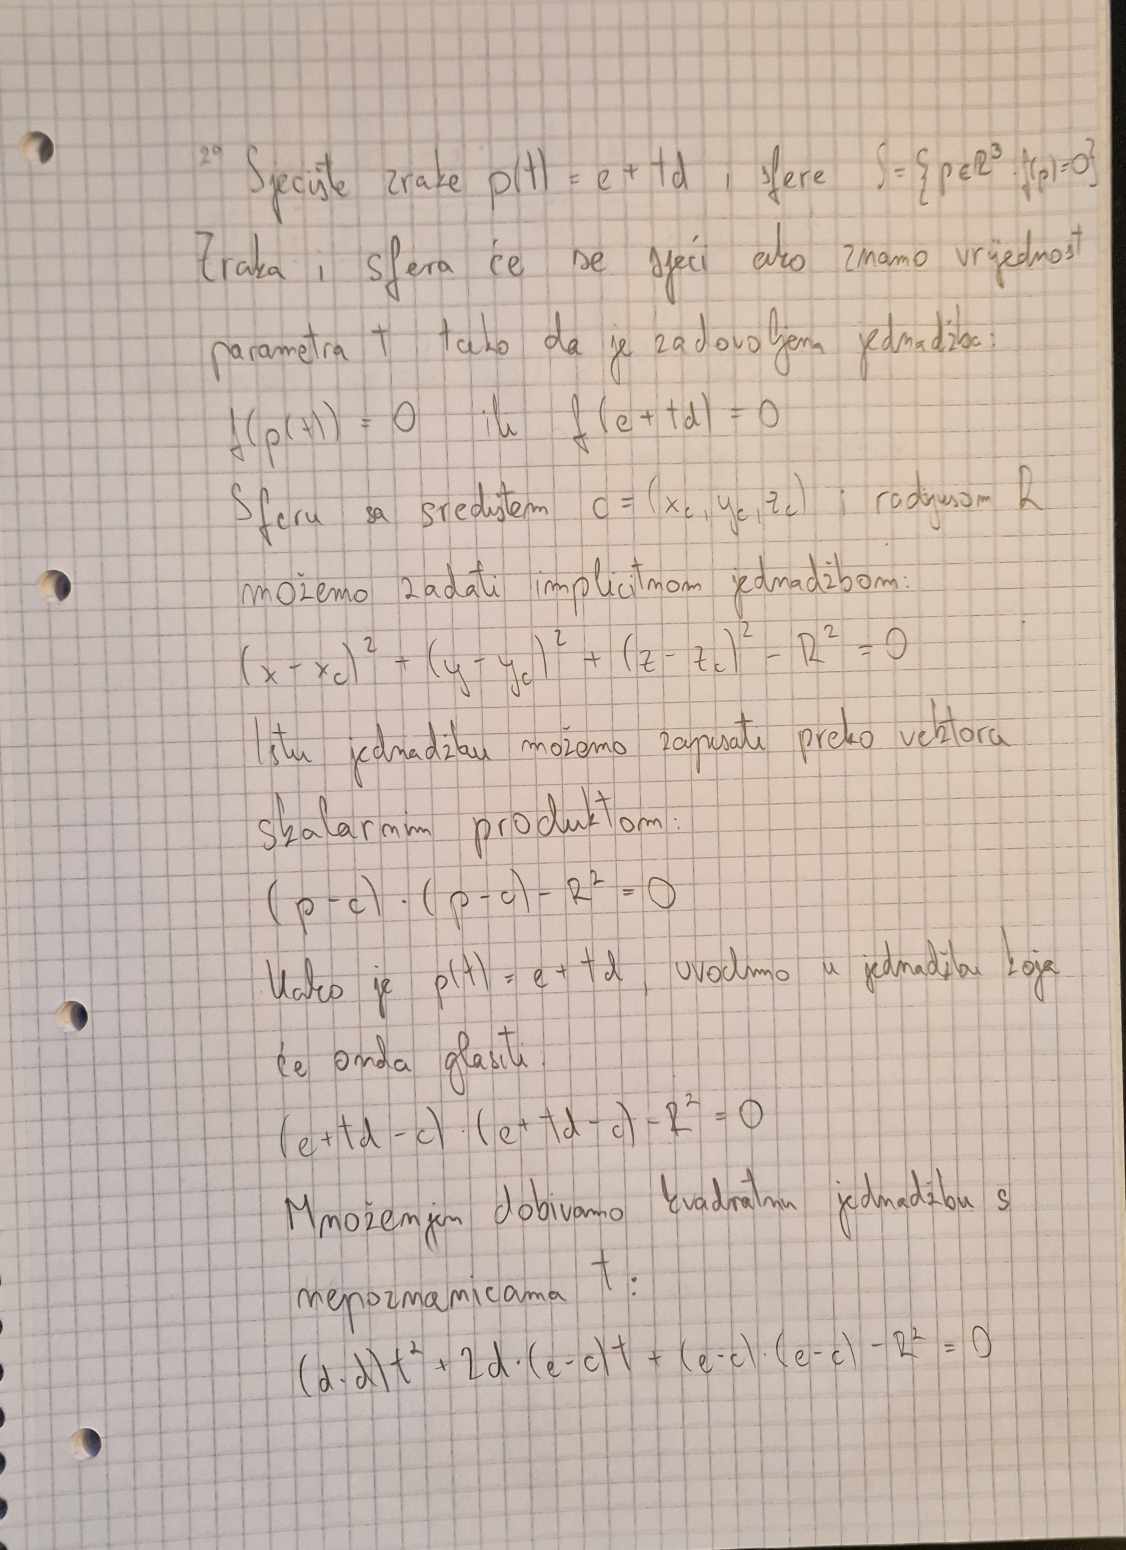 29 Sjecište zrake p(t) = e + td i sfere S = {p∈R³ : f(p)=0}
Zraka i sfera će se sjeći ako znamo vrijednost
parametra t tako da je zadovoljena jednadžba:
f(p(t)) = 0 ili f(e + td) = 0
Sferu sa središtem c = (x_c, y_c, z_c) i radijusom R
možemo zadati implicitnom jednadžbom:
(x - x_c)² + (y - y_c)² + (z - z_c)² - R² = 0
Istu jednadžbu možemo zapisati preko vektora
skalarnim produktom:
(p - c) · (p - c) - R² = 0
Kako je p(t) = e + td, uvodimo u jednadžbu koja
će onda glasiti
(e + td - c) · (e + td - c) - R² = 0
Množenjem dobivamo kvadratnu jednadžbu s
nepoznanicama t:
(d·d)t² + 2d·(e-c)t + (e-c)·(e-c) - R² = 0